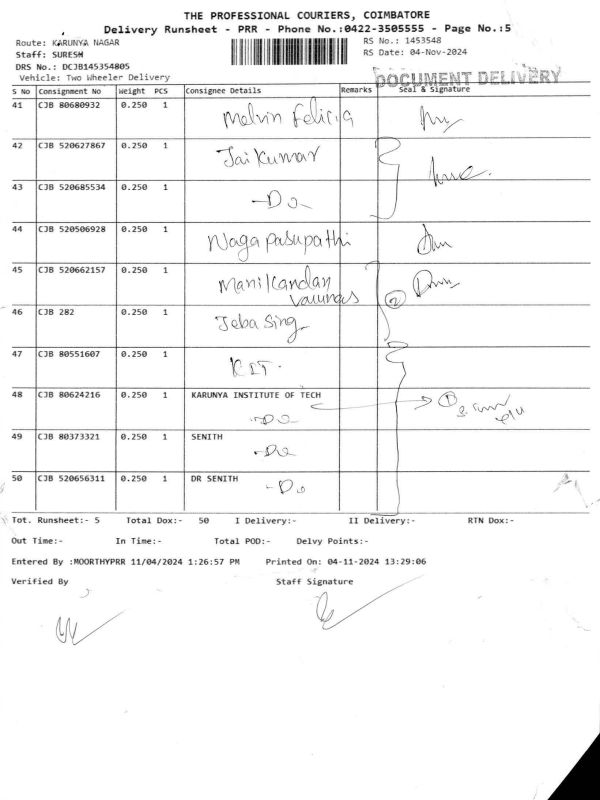 THE PROFESSIONAL COURIERS, COIMBATORE
Delivery Runsheet - PRR - Phone No.:0422-3505555 - Page No.:5
Route: KARUNYA NAGAR RS No.: 1453548
Staff: SURESH RS Date: 04-Nov-2024
DRS No.: DCJB145354805
Vehicle: Two Wheeler Delivery DOCUMENT DELIVERY
S No Consignment No Weight PCS Consignee Details Remarks Seal & Signature
41 CJB 80680932 0.250 1 Melvin Felicia
42 CJB 520627867 0.250 1 Jai Kumar
43 CJB 520685534 0.250 1 -Do-
44 CJB 520506928 0.250 1 Naga pasupathi
45 CJB 520662157 0.250 1 Manikandan
46 CJB 282 0.250 1 Jeba Sing
47 CJB 80551607 0.250 1 KIT.
48 CJB 80624216 0.250 1 KARUNYA INSTITUTE OF TECH
-Do
49 CJB 80373321 0.250 1 SENITH
-Do
50 CJB 520656311 0.250 1 DR SENITH
-Do
Tot. Runsheet:- 5 Total Dox:- 50 I Delivery:- II Delivery:- RTN Dox:-
Out Time:- In Time:- Total POD:- Delvy Points:-
Entered By :MOORTHYPRR 11/04/2024 1:26:57 PM Printed On: 04-11-2024 13:29:06
Verified By Staff Signature